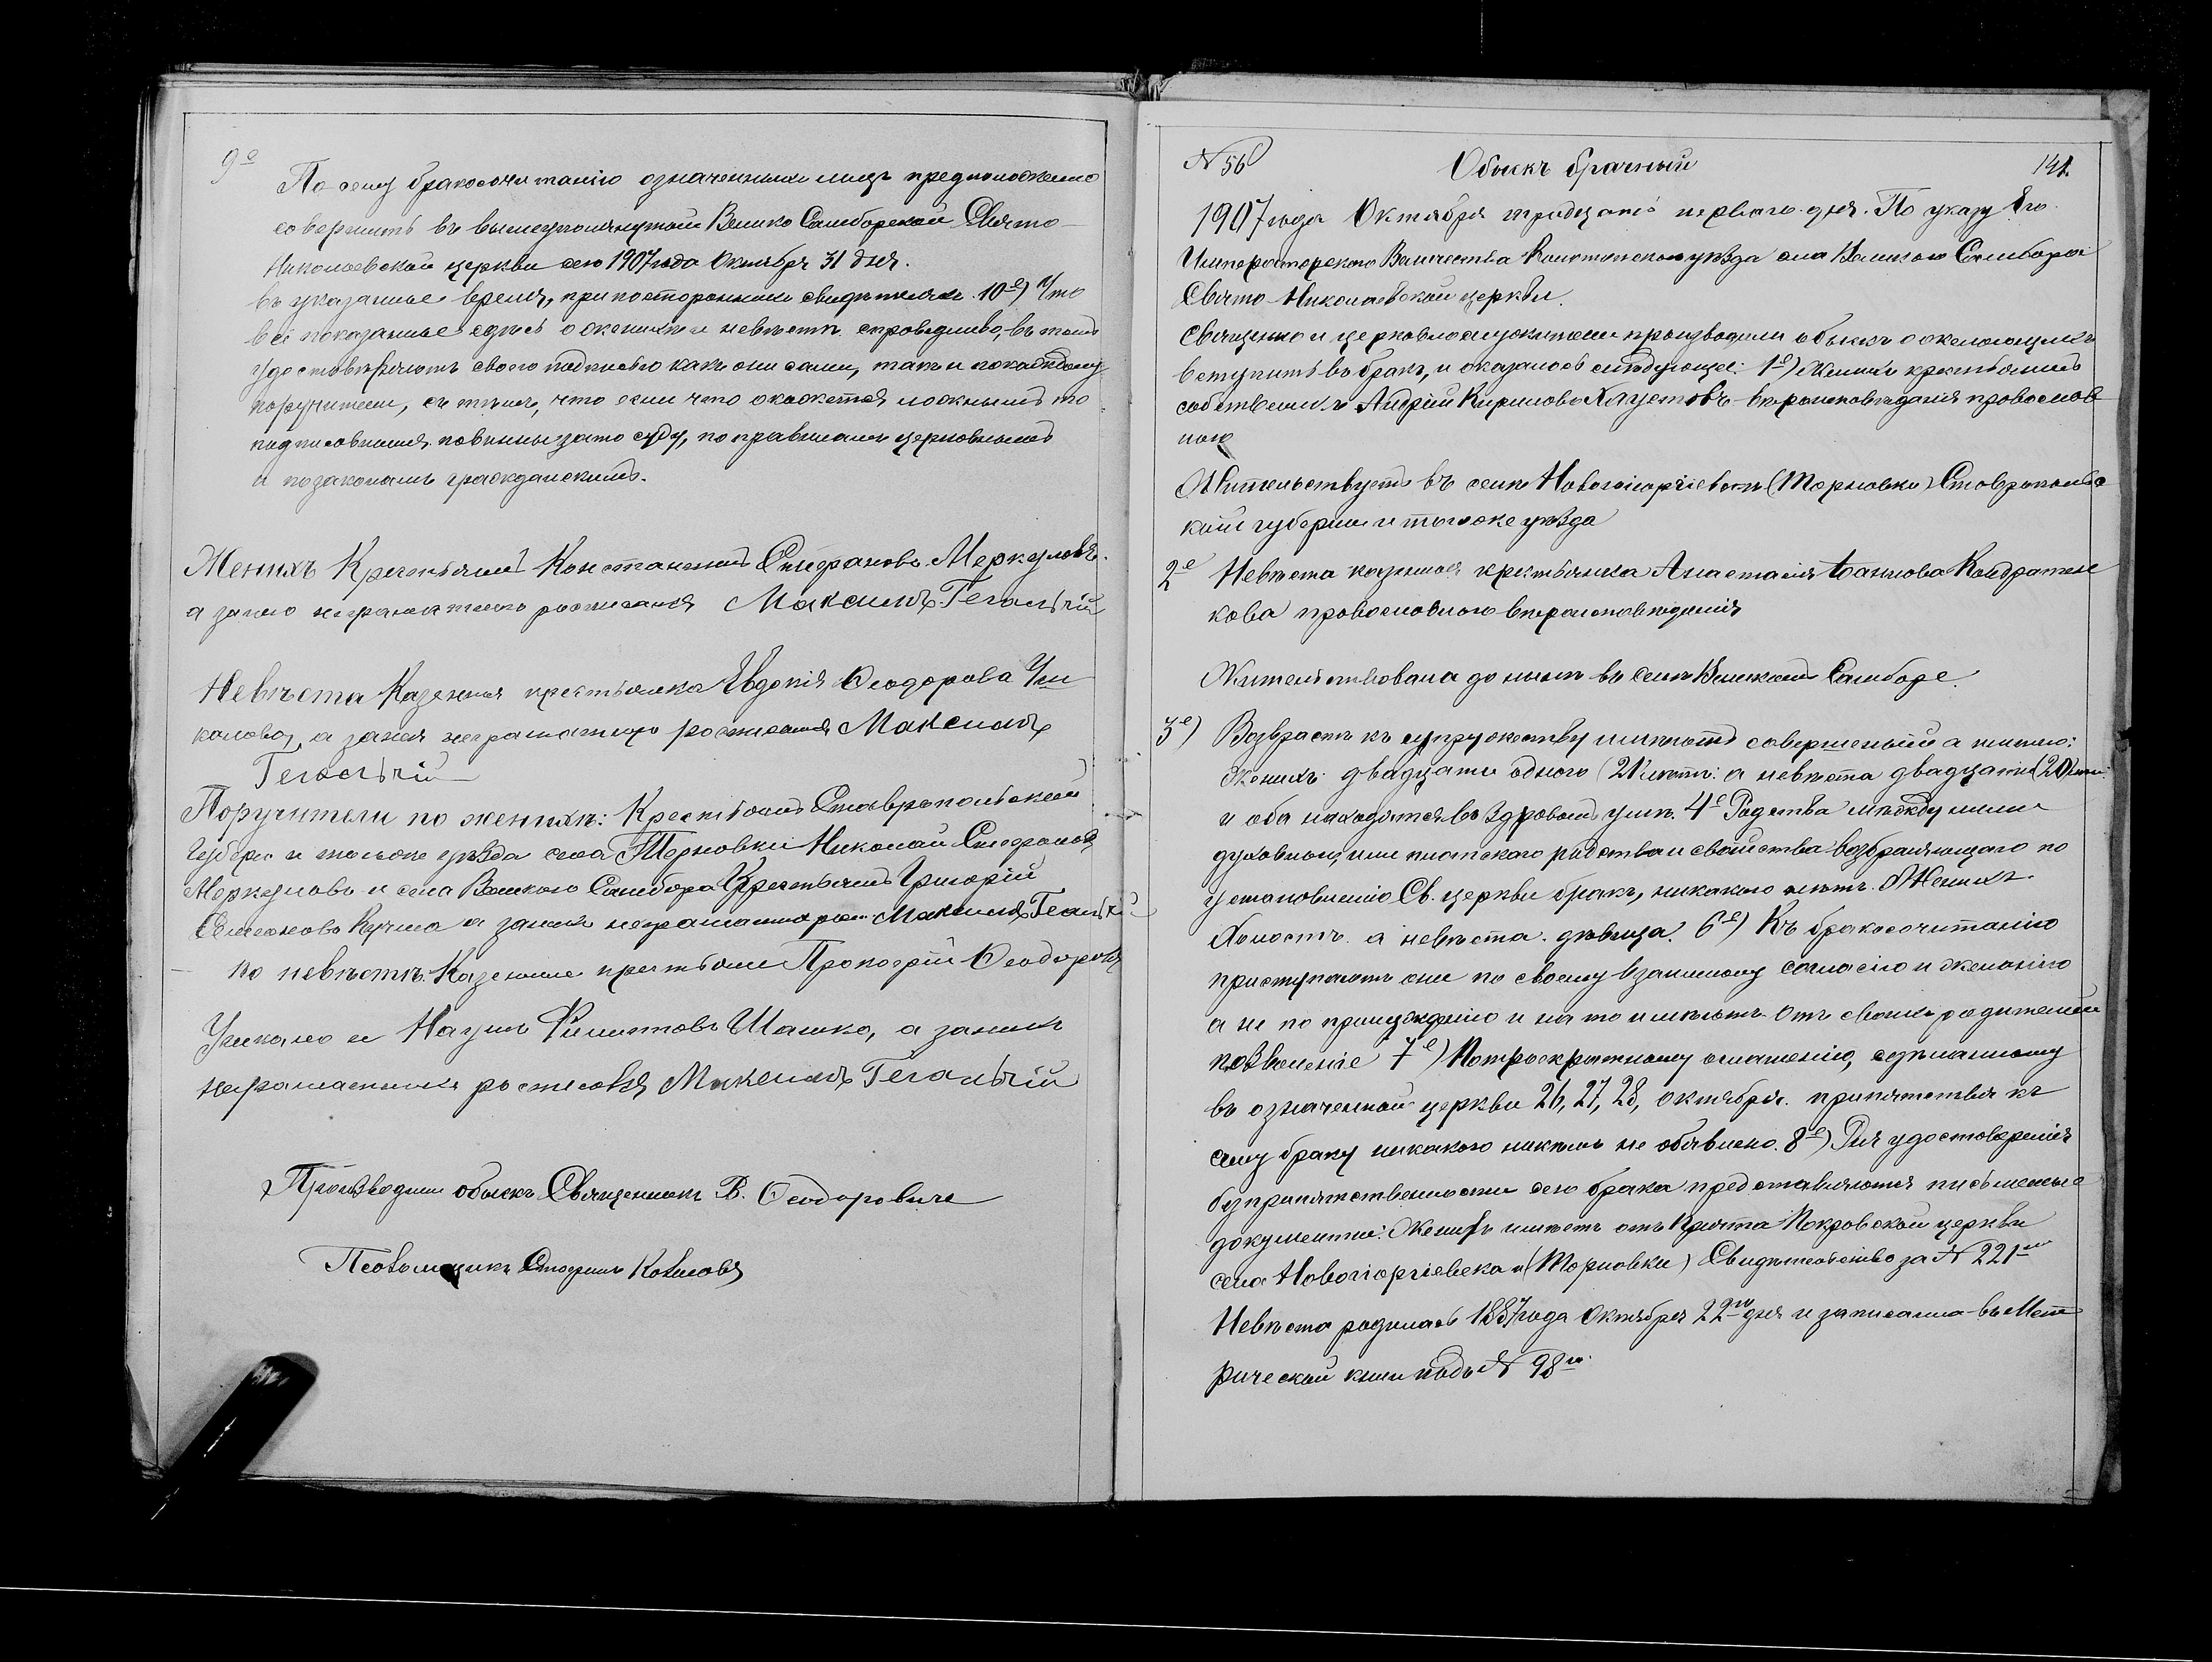 9е
По сему бракосочитанію означенныхъ лицъ предположено
совершить въ вышеупомянутой Велико Самборской Свято-
Николаевской церкви сего 1907 года Октября 31 дня.
въ указанное время, при постороннихъ свидѣтеляхъ. 10е) Что
всё показанное здѣсь о женихѣ и невѣстѣ справедливо, въ томъ
удостовѣряютъ своею подписью какъ они сами, такъ и по каждому
поручители, съ тѣмъ, что если что окажется ложнымъ то
подписавшіяся повинны за то суду, по правиламъ церковнымъ
и по законамъ гражданскимъ.
Женихъ Крестьянинъ Константинъ Стефановъ Меркуловъ.
а за него неграмотного росписался Максимъ Гегальчій
Невѣста Казенная крестьянка Евдокія Ѳеодорова Уш
калова, а за нея неграмотную росписался Максимъ
Гегальчій
Поручители по женихѣ: Крестьянинъ Ставропольской
Губерн и того же уѣзда села Терновки Николай Стефановъ
Меркуловъ и села Великого Самбора Крестьянинъ Григорій
Симеоновъ Кучма а за нихъ неграмотныхъ рос. Максимъ Гегальчій
по невѣстѣ. Казенные крестьяне Прокофій Ѳеодоровъ
Ушкало и Наумъ Филипповъ Шашко, а за нихъ
неграмотныхъ росписался Максимъ Гегальчій
Производили обыскъ Священникъ В. Ѳеодоровичъ
Псаломщикъ Стефанъ
N 56
Обыскъ брачный
141.
1907 года Октября тридцать перваго дня. По указу Его
Императорского Величества Конотопского уѣзда села Великого Самбора
Свято-Николаевской церкви.
Священно и церковнослужители производили обыскъ о желающихъ
вступить въ бракъ, и оказалось слѣдующее: 1е) Женихъ крестьянинъ
собственникъ Андрей Кириловъ Хаустовъ вѣроисповѣданія православ
ного
Жительствуетъ въ селѣ Новогеоргіевскѣ (Терновки) Ставропольс
кой губерніи и того же уѣзда
2е Невѣста казенная крестьянка Анастасія Кондратен
кова православного вѣроисповѣданія
Жительствовала до нынѣ въ селѣ Великомъ Самборе.
3е) Возврастъ къ супружеству имѣютъ совершенный а именно:
Женихъ двадцати одного (21) лѣтъ: а невѣста двадцати (20) лѣтъ
и оба находятся въ здоровомъ умѣ. 4е Родства между ними
духовного, или плотского родства и свойства возбраняющаго по
установленію Св. церкви бракъ, никакого нѣтъ. Женихъ
Холостъ. а невѣста дѣвица. 6е) Къ бракосочитанію
приступаютъ они по своему взаимному согласію и желанію
а не по принужденію и на то имѣютъ отъ своихъ родителей
позволеніе 7е) По троекратному оглашенію, сдѣланному
въ означенной церкви 26, 27, 28, октября. припятствія къ
сему браку никакого никѣмъ не объявлено. 8е) Для удостовѣренія
безприпятственности сего брака представляются письменые
документы: Женихъ имѣетъ отъ причта Покровской церкви
села Новогеоргіевска (Терновки) Свидѣтельство за N 221м
Невѣста родилась 1887 года Октября 22го дня и записанна въ Мет
рической книги подъ N 98м.